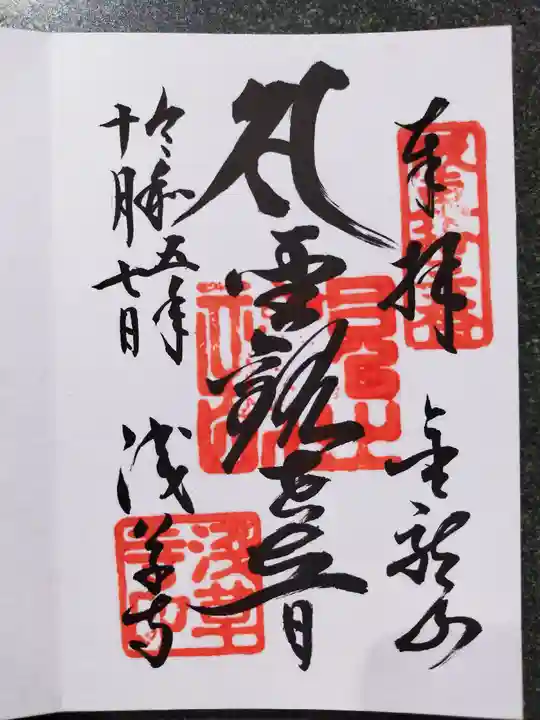 奉拝 金龍山
聖観世音
令和五年
十月七日
浅草寺